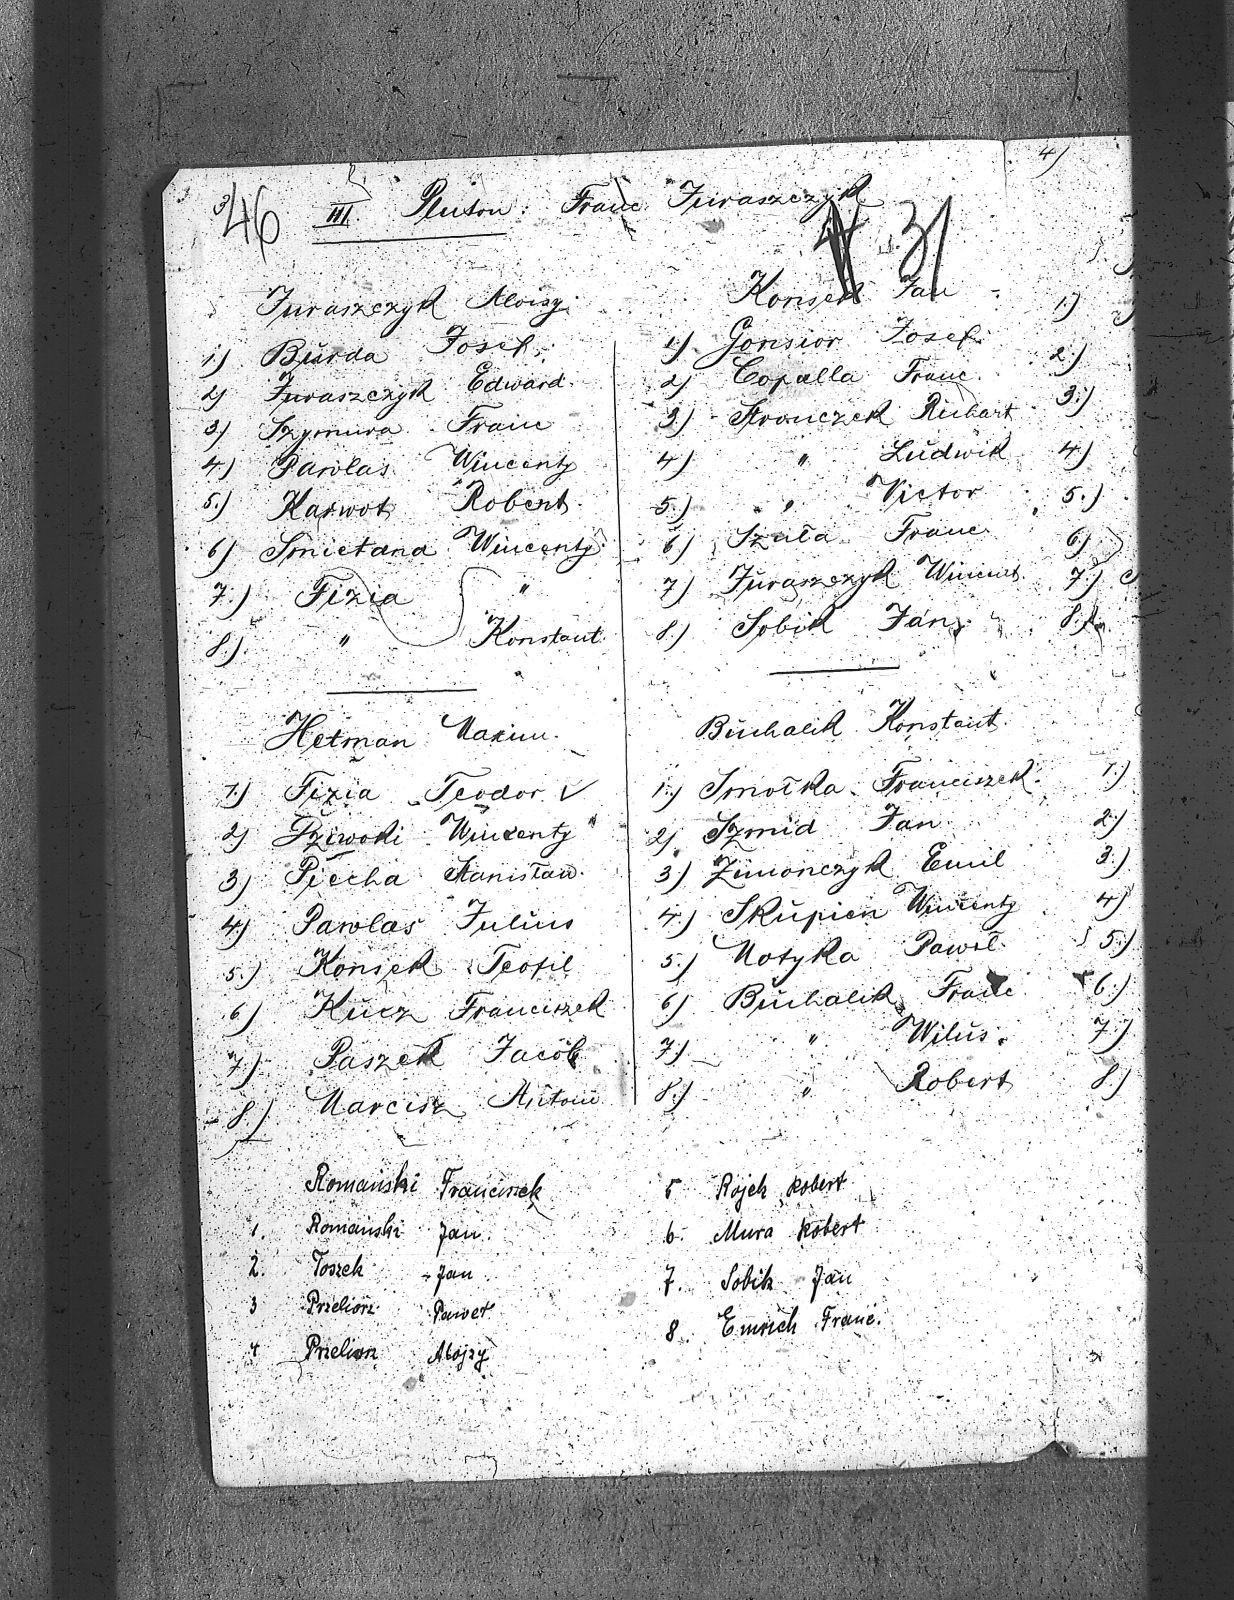 3) 46 III. Pluton: Franc Juraszczyk
31
Juraszczyk Aloisy.
1.) Burda Josef.
2) Juraszczyk Edward.
3) Szymura Franc
4) Pawlas Wincenty
5.) Karwot Robert.
6) Smietana Wincenty.
7.) Fizia "
8.) " Konstant.
Konsek Jan
1.) Gonsior Josef.
2) Copalla Franc.
3.) Stronczek Richart
4.) " Ludwik
5.) " Victor
6) Szula Franc
7) Juraszczyk Wincent.
8.) Sobik Jan
Hetman Maxim.
1.) Fizia Teodor V
2) Wincenty
3) Piecha Stanisław.
4) Pawlas Julius
5.) Konsek Teofil
6) Kucz Franciszek
7) Paszek Jacob
8.) Marcisz Antoni
Buchalik Konstant.
1.) Smołka Franciszek.
2) Szmid Jan
3.) Zimonczyk Emil
4.) Skupien Wincenty
5.) Motyka Paweł
6) Buchalik Franc
7.) " Wilus.
8.) " Robert
Romański Franciszek
1. Romański Jan
2. Toszek - Jan
3 Przeliorz Paweł
4 Przeliorz Alojzy
5 Rojek Robert
6. Mura Robert
7. Sobik Jan
8. Emrich Franc.
4)
1.)
2.)
3.)
4.)
5.)
6)
7.)
8.)
1.)
2.)
3.)
4)
5.)
6.)
7.)
8.)